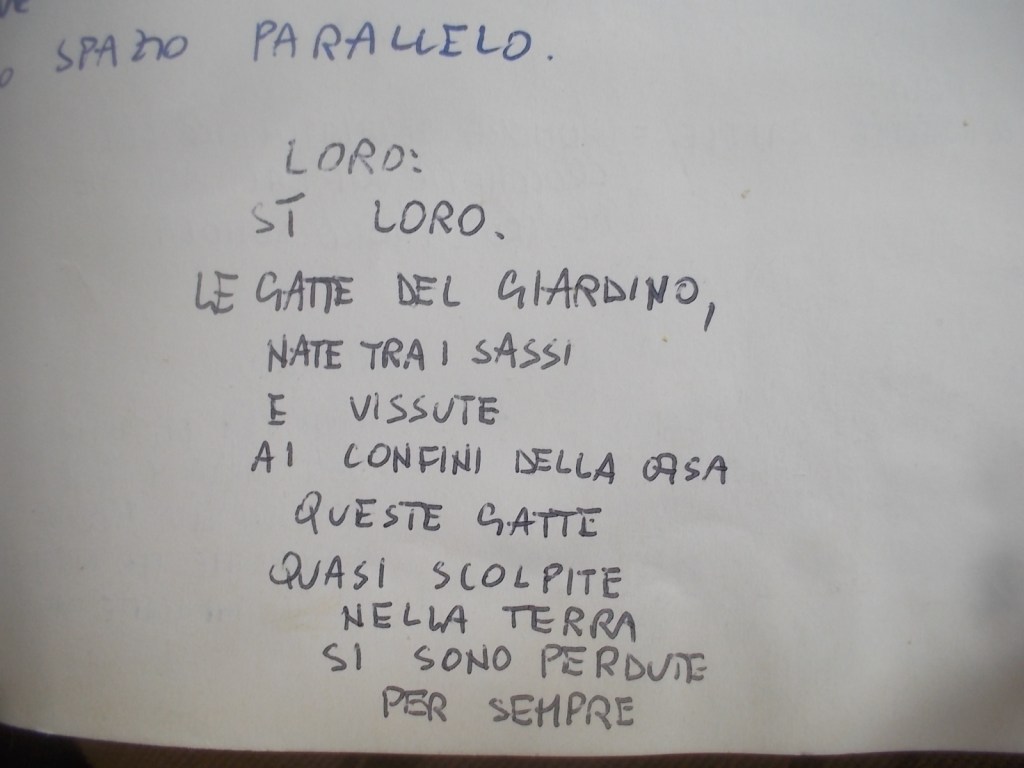 SPAZIO PARALLELO.
LORO:
SÌ LORO.
LE GATTE DEL GIARDINO,
NATE TRA I SASSI
E VISSUTE
AI CONFINI DELLA CASA
QUESTE GATTE
QUASI SCOLPITE
NELLA TERRA
SI SONO PERDUTE
PER SEMPRE